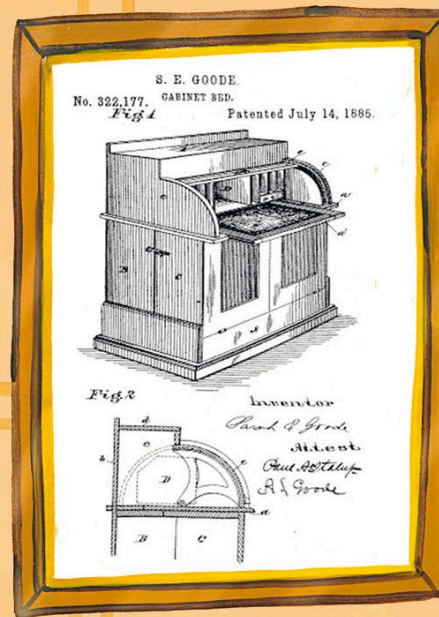 S. E. GOODE.
CABINET BED.
No. 322,177. Patented July 14, 1885.
Fig 1
Fig. 2
Inventor
Sarah E Goode
Attest
A L Goode